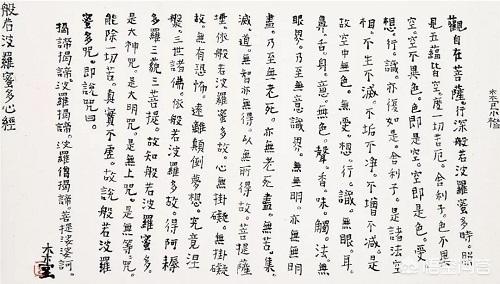 觀自在菩薩。行深般若波羅蜜多時。照
見五蘊皆空。度一切苦厄。舍利子。色不異
空。空不異色。色即是空。空即是色。受。
想。行。識。亦復如是。舍利子。是諸法空
相。不生不滅。不垢不淨。不增不減。是
故空中無色。無受。想。行。識。無眼。耳。
鼻。舌。身。意。無色。聲。香。味。觸。法。無
眼界。乃至無意識界。無無明。亦無無明
盡。乃至無老死。亦無老死盡。無苦。集。
滅。道。無智亦無得。以無所得故。菩提薩
埵。依般若波羅蜜多故。心無掛礙。無掛礙
故。無有恐怖。遠離顛倒夢想。究竟涅
槃。三世諸佛。依般若波羅蜜多故。得阿耨
多羅三藐三菩提。故知般若波羅蜜多。
是大神咒。是大明咒。是無上咒。是無等等咒。
能除一切苦。真實不虛。故說般若波羅
蜜多咒。即說咒曰。
揭諦揭諦。波羅揭諦。波羅僧揭諦。菩提娑婆訶。
般若波羅蜜多心經